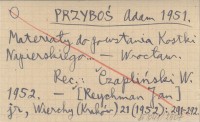 PRZYBOŚ Adam 1951.
Materiały do powstania Kostki
Napierskiego. — Wrocław.
Rec.: Czapliński W.
1952. — [Reychman Jan]
jr, Wierchy (Kraków) 21 (1952): 291-292.